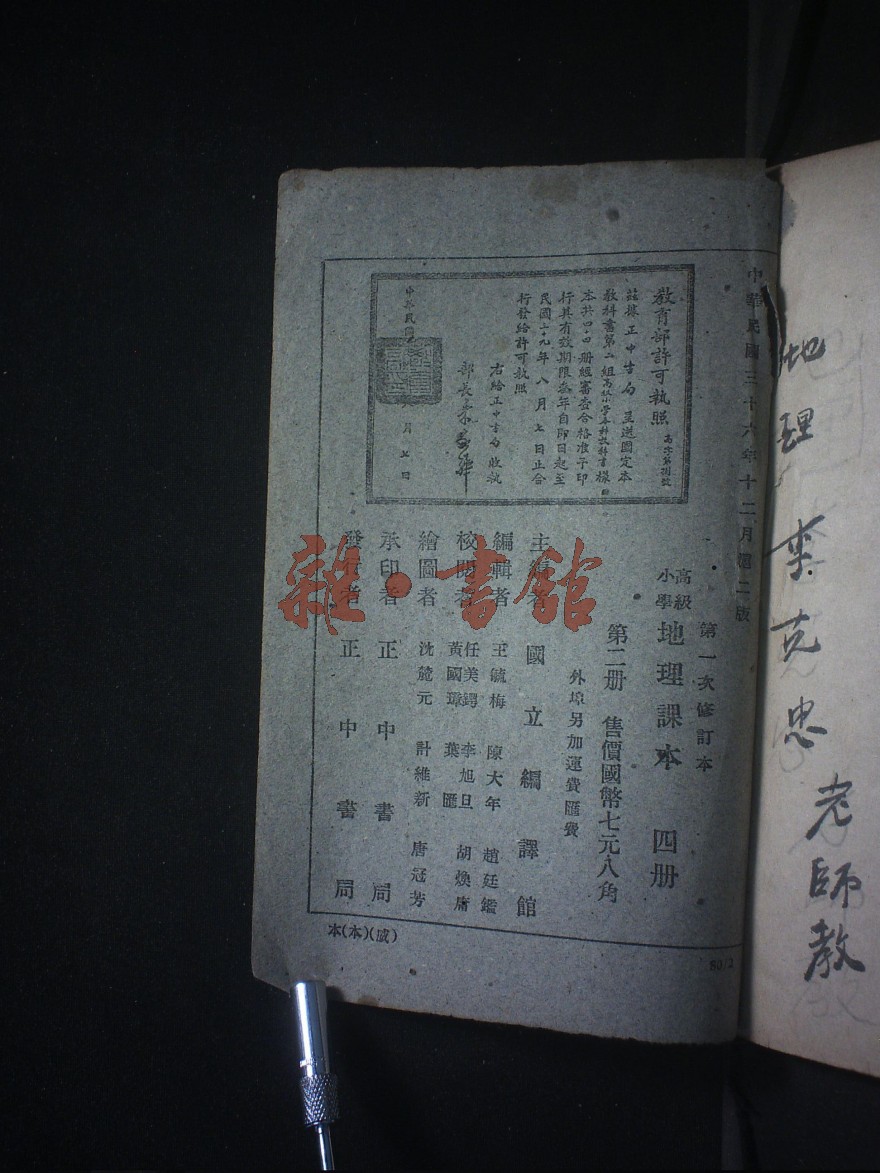 中華民國三十六年十二月第二版
教育部許可執照
茲據正中書局呈送國定本
教科書第二組高級小學本科教科書樣
本共四四冊經審查合格准予印
行其有效期限叁年自即日起至
民國三十九年八月七日止合
行發給許可執照
右給正中書局收執
部長朱家驊
中華民國
月七日
第一次修訂本
高級小學 地理課本 四册
第二册 售價國幣七元八角
外埠另加運費匯費
主編者 國立編譯館
編輯者 王毓梅 陳大年 趙廷鑑
校閱者 任美鍔 李旭旦 胡煥庸
黃國璋 葉匯
繪圖者 沈麓元 計維新 唐冠芳
承印者 正中書局
發行者 正中書局
本(本)(威)
80/2
雜·書館
地理 李克忠 老師教